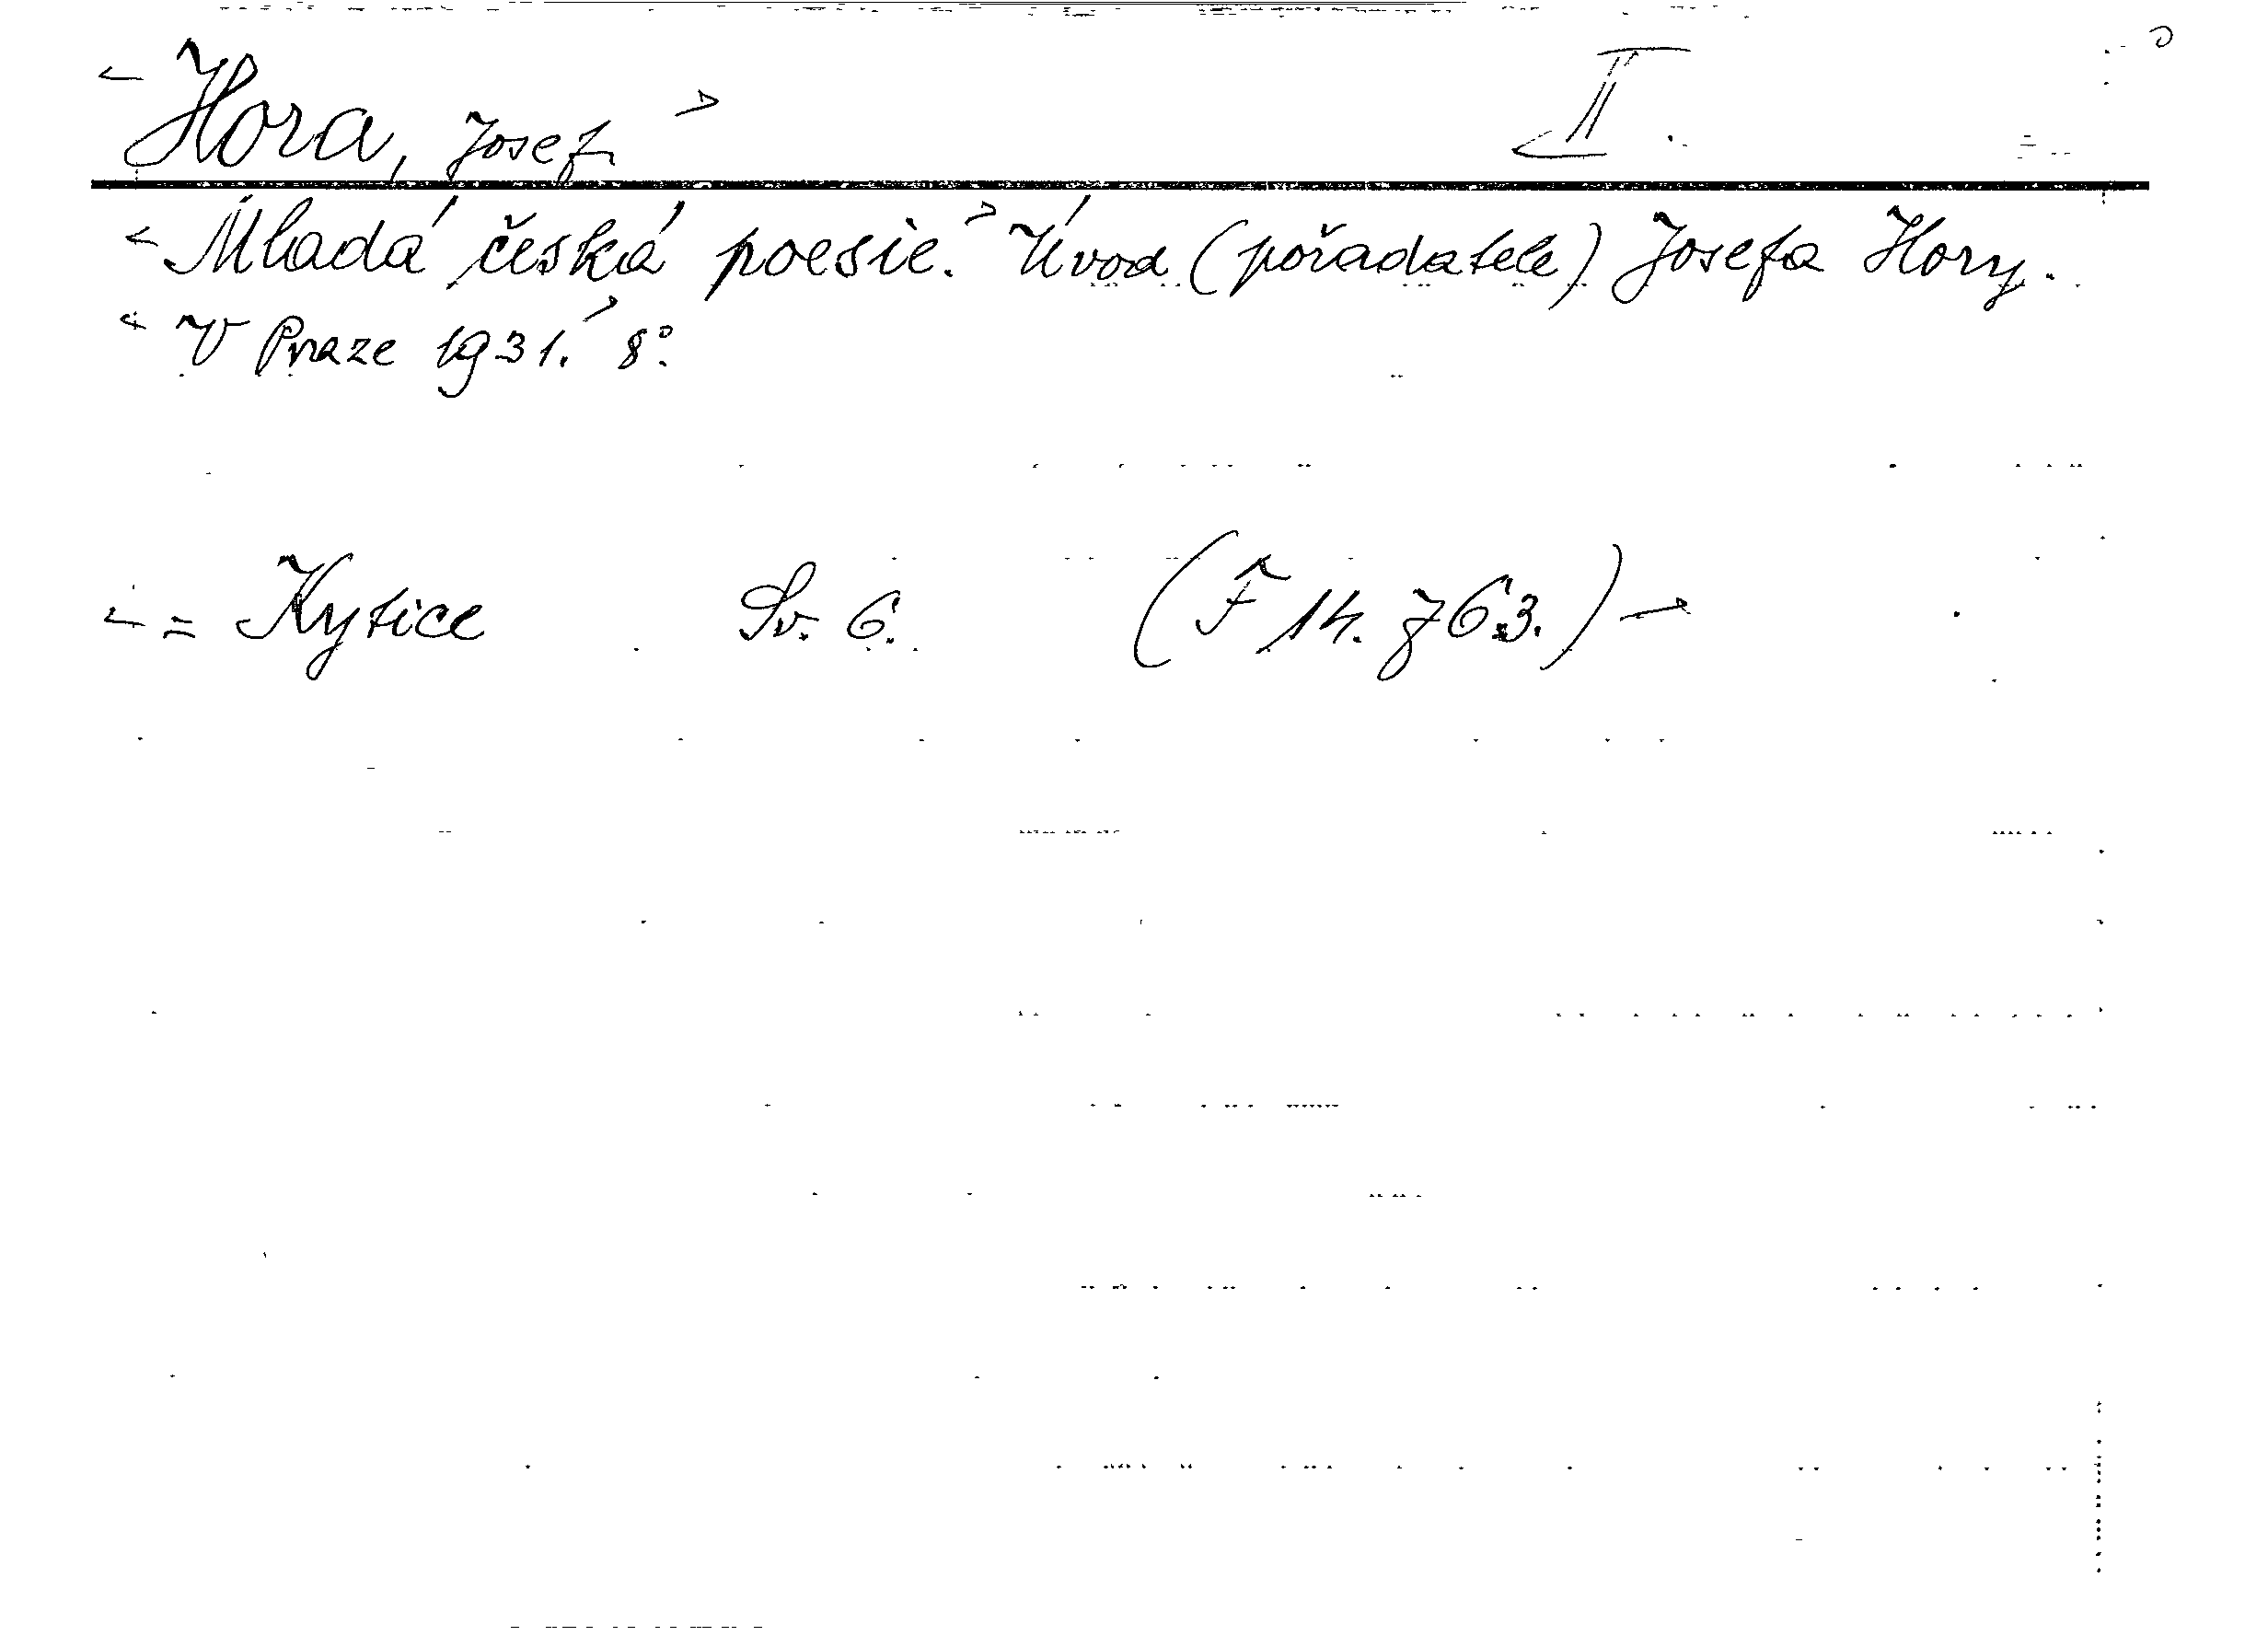 Hora, Josef II.
Mladá česká poesie. Úvod (pořadatele) Josefa Hory.
V Praze 1931. 8°.
= Kytice Sv. 6. (F 14. J 63.)